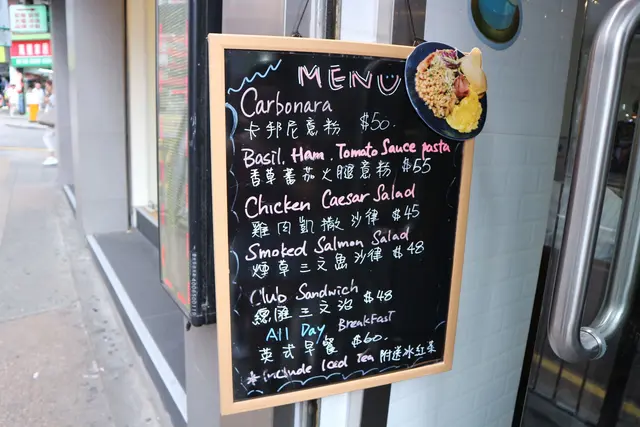 MENU
Carbonara
卡邦尼意粉 $50.
Basil, Ham, Tomato Sauce pasta
香草蕃茄火腿意粉 $55
Chicken Caesar Salad
雞肉凱撒沙律 $45
Smoked Salmon Salad
煙三文魚沙律 $48
Club Sandwich
三文治 $48
All Day Breakfast
英式早餐 $60.
*include Iced Tea 附送冰紅茶